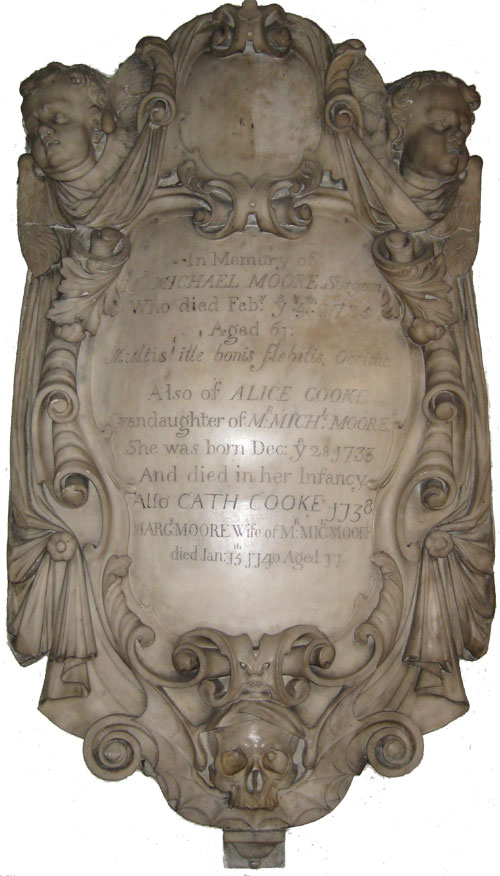 In Memory of
Mr. MICHAEL MOORE Surgeon
Who died Febr. ye 4th. 173
Aged 63.
Multis ille bonis flebilis, Occidit.
Also of ALICE COOKE
Grandaughter of Mr. MICHl. MOORE
She was born Dec: ye 28 1735
And died in her Infancy
Also CATH COOKE 1738
MARGt. MOORE Wife of Mr. MIC MOORE
died Jan: 15th 1740 Aged 77